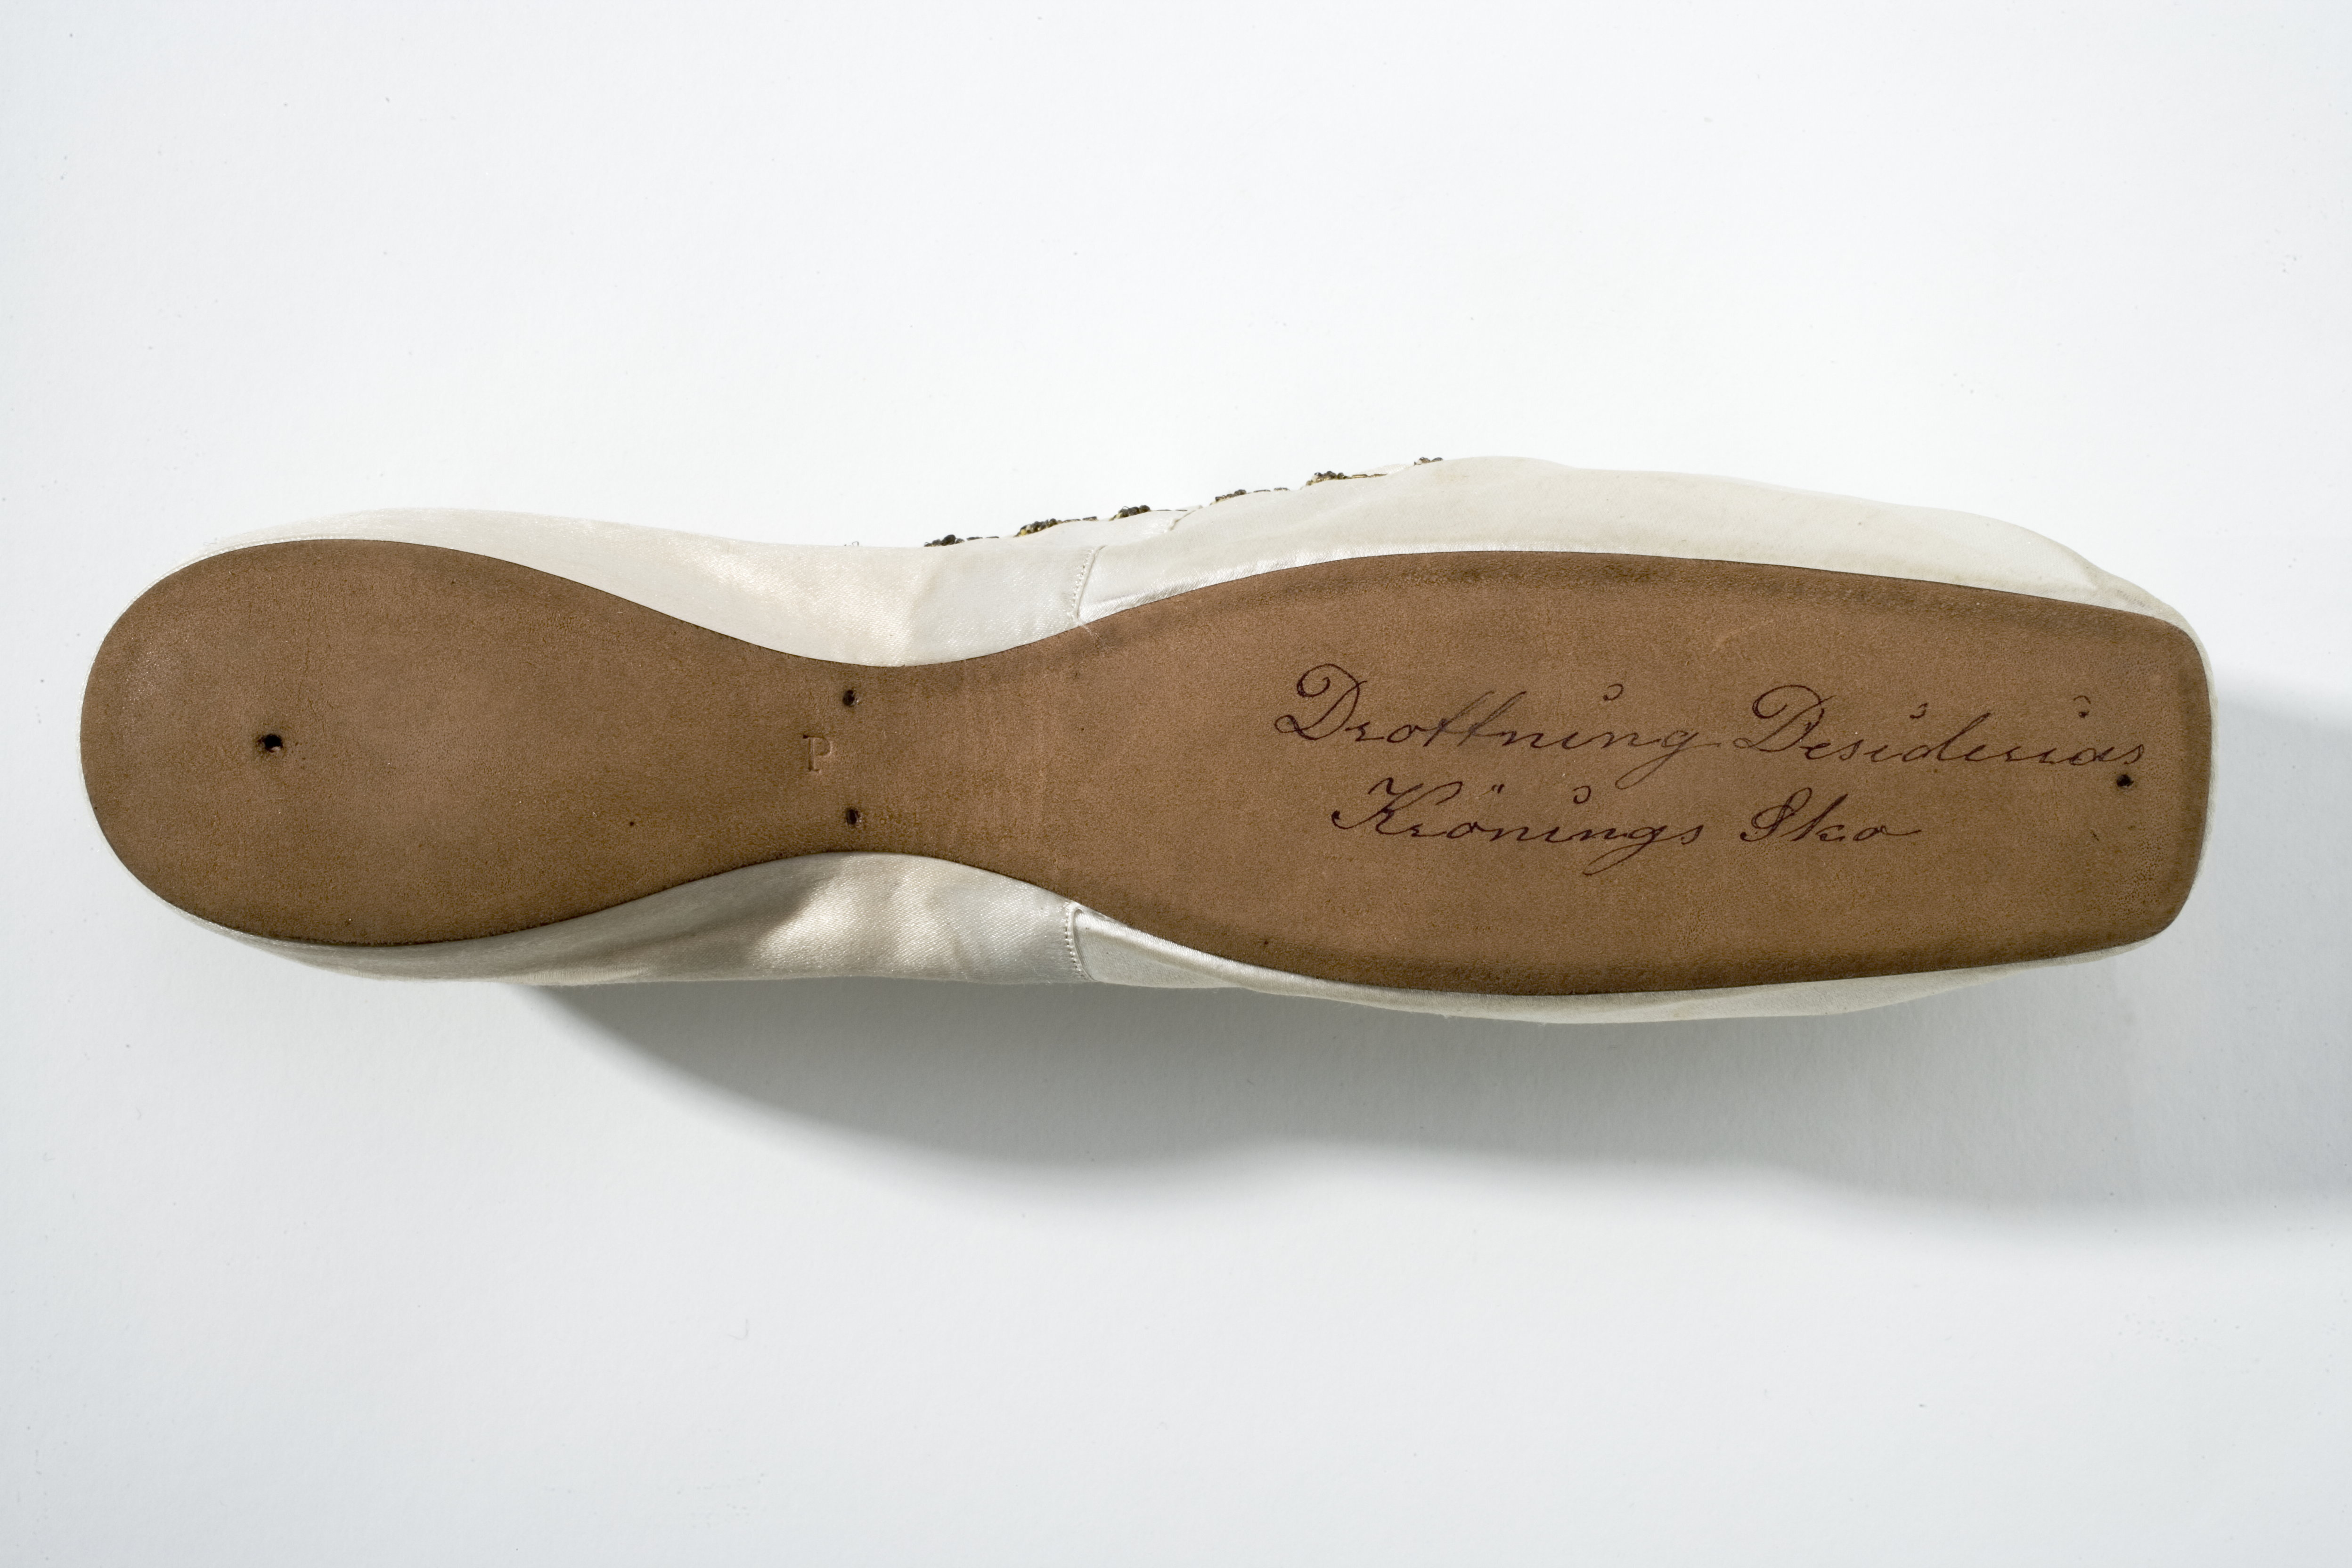 P
Drottning Desiderias
Krönings Sko